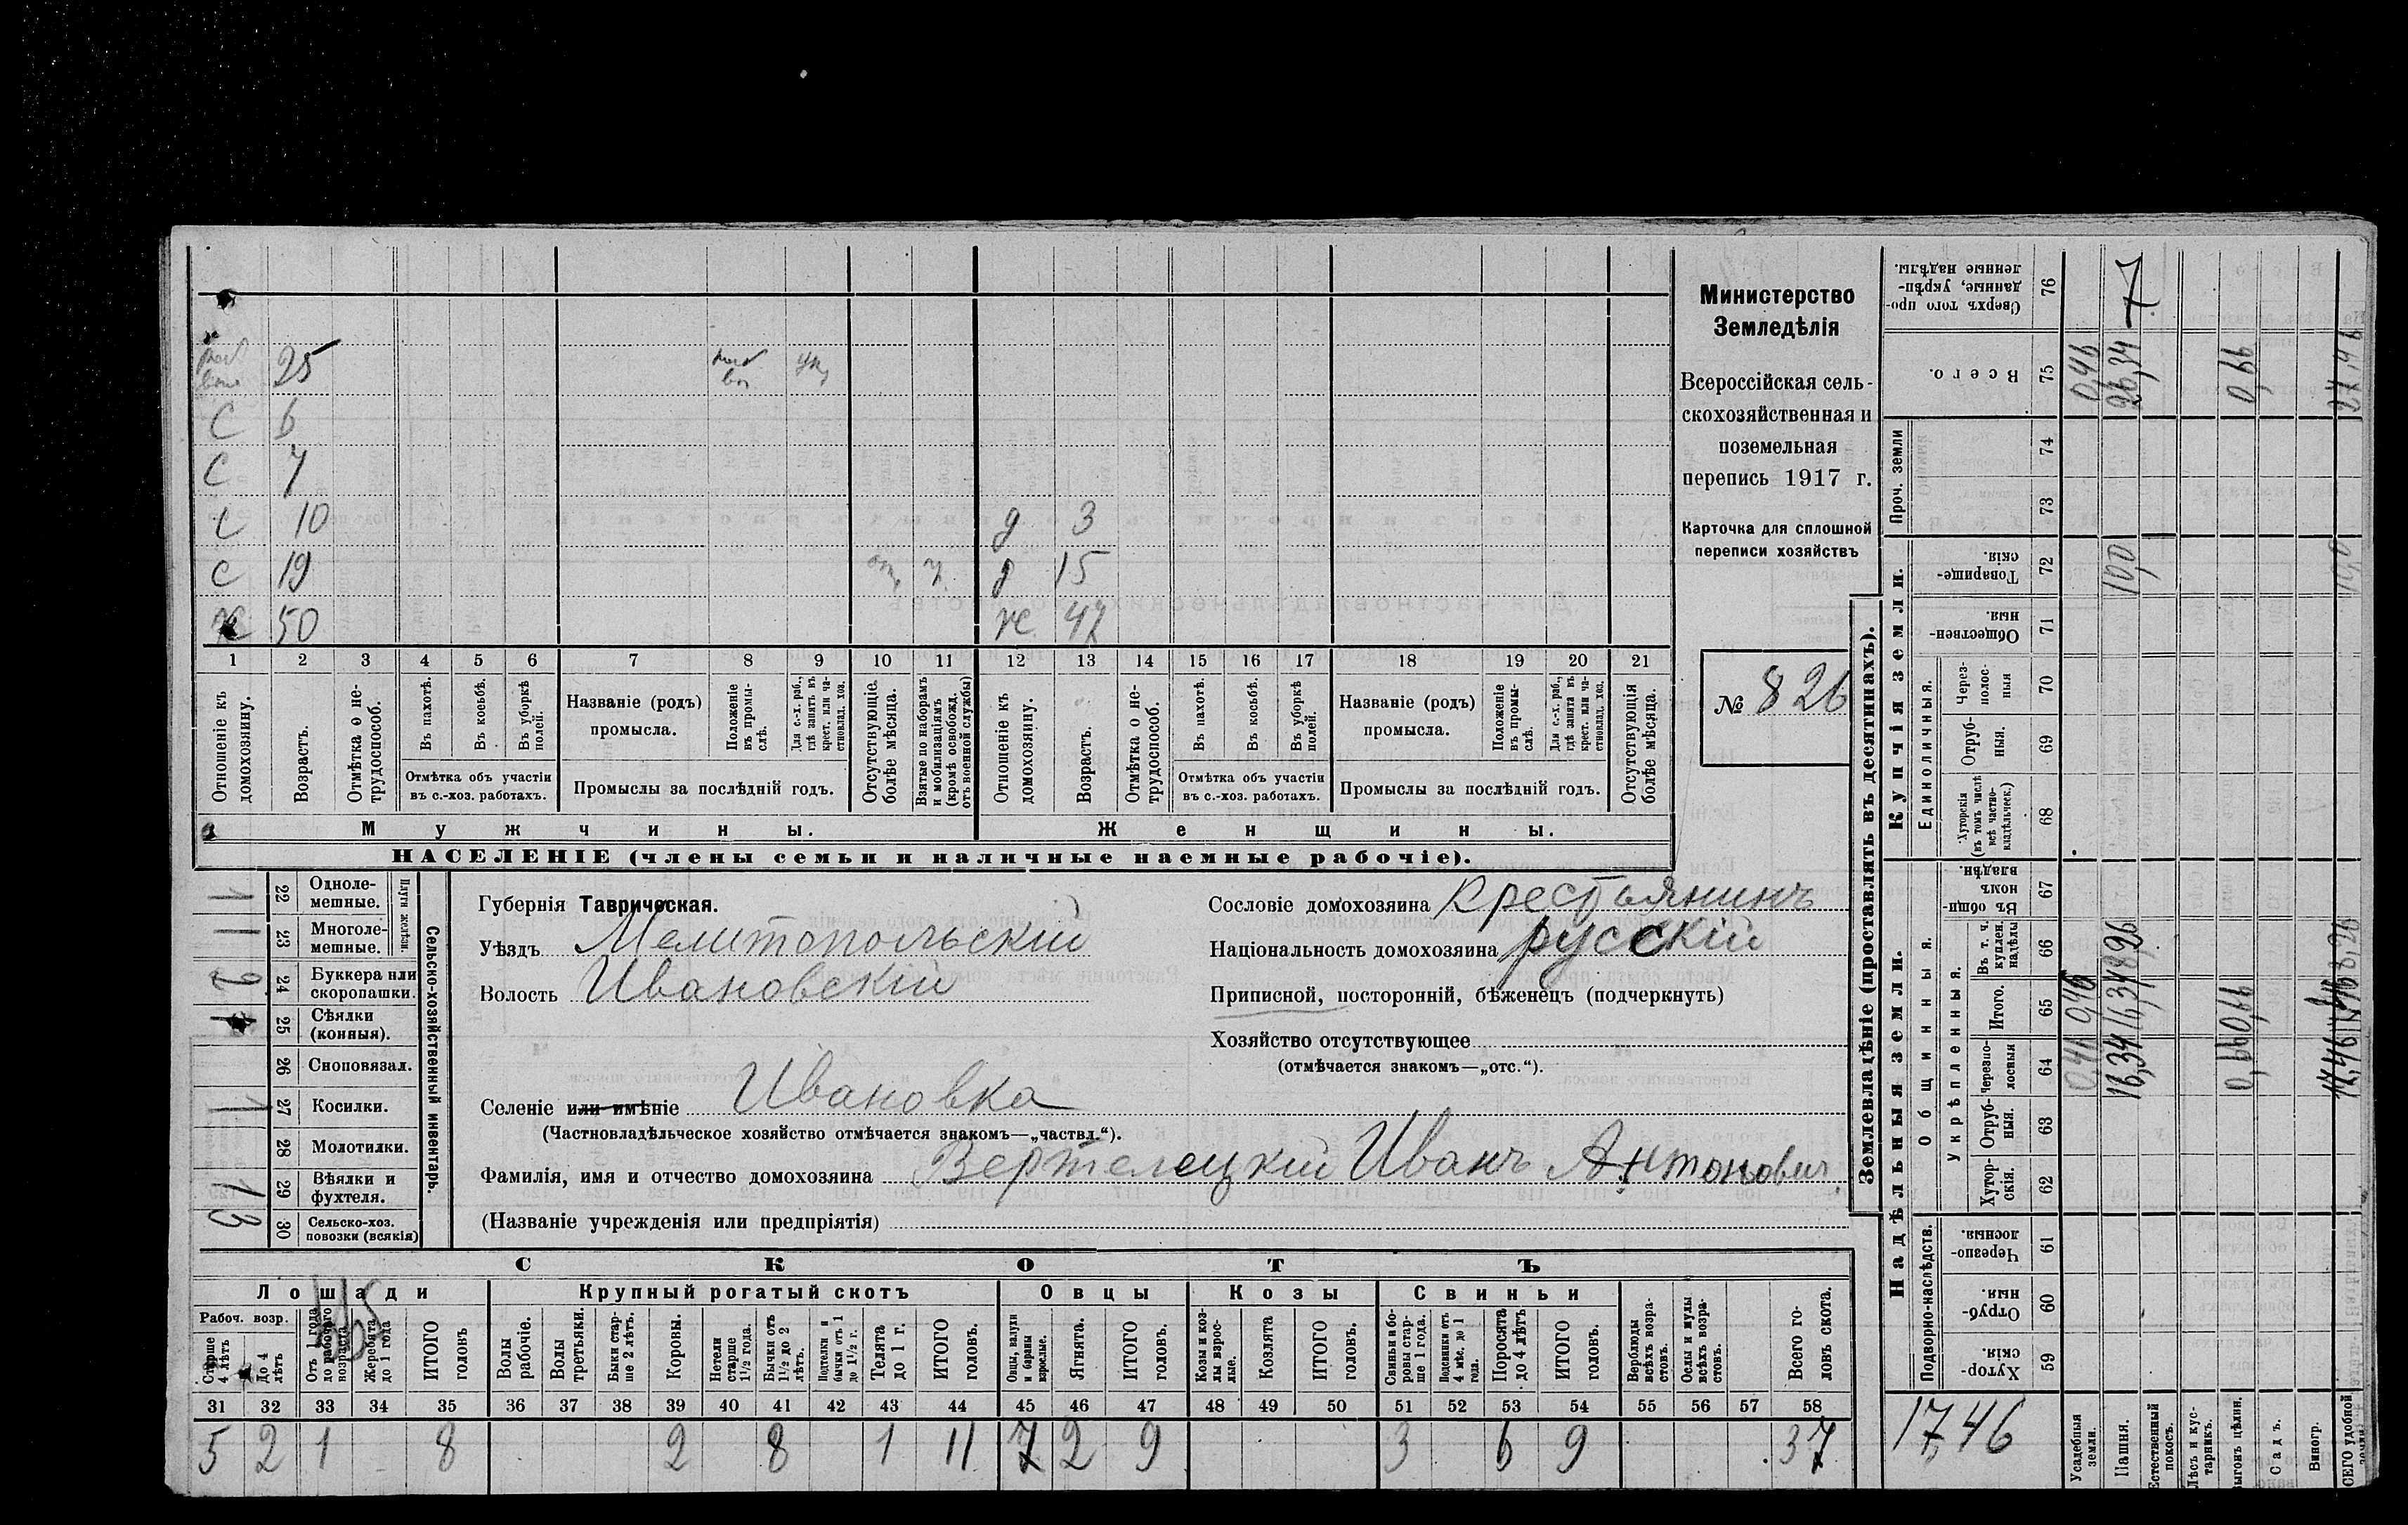 25
С 6
С 7
С 10 д 3
С 19 д 15
50 ж 47
1 2 3 4 5 6 7 8 9 10 11 12 13 14 15 16 17 18 19 20 21
Отношеніе къ домохозяину.
Возрастъ.
Отмѣтка о не-трудоспособ.
Въ пахотѣ.
Въ косьбѣ.
Въ уборкѣ полей.
Отмѣтка объ участіи въ с.-хоз. работахъ.
Названіе (родъ) промысла.
Положеніе въ промы-слѣ.
Для с.-х. раб., гдѣ занятъ въ крест. или ча-стновлад. хоз.
Промыслы за послѣдній годъ.
Отсутствующіе болѣе мѣсяца.
Взятые по наборамъ и мобилизаціямъ (кромѣ освобожд. отъ военной службы)
Отношеніе къ домохозяину.
Возрастъ.
Отмѣтка о не-трудоспособ.
Въ пахотѣ.
Въ косьбѣ.
Въ уборкѣ полей.
Отмѣтка объ участіи въ с.-хоз. работахъ.
Названіе (родъ) промысла.
Положеніе въ промы-слѣ.
Для с.-х. раб., гдѣ занята въ крест. или ча-стновлад. хоз.
Промыслы за послѣдній годъ.
Отсутствующія болѣе мѣсяца.
Мужчины.
Женщины.
НАСЕЛЕНІЕ (члены семьи и наличные наемные рабочіе).
Министерство
Земледѣлія
Всероссійская сель-
скохозяйственная и
поземельная
перепись 1917 г.
Карточка для сплошной
переписи хозяйствъ
№ 826
Сельско-хозяйственный инвентарь.
Плуги желѣзн.
22 Одноле-мешные. 1
23 Многоле-мешные. 1
24 Буккера или скоропашки. 2
25 Сѣялки (конныя).
26 Сноповязал.
27 Косилки. 1
28 Молотилки.
29 Вѣялки и фухтеля. 1
30 Сельско-хоз. повозки (всякія) 3
Губернія Таврическая.
Уѣздъ Мелитопольскій
Волость Ивановскій
Селеніе или имѣніе Ивановка
(Частновладѣльческое хозяйство отмѣчается знакомъ—„частвл.“).
Фамилія, имя и отчество домохозяина Вертелецкій Иванъ Антонович
(Названіе учрежденія или предпріятія)
Сословіе домохозяина крестьянинъ
Національность домохозяина русскій
Приписной, посторонній, бѣженецъ (подчеркнуть)
Хозяйство отсутствующее
(отмѣчается знакомъ—„отс.“).
СКОТЪ
Лошади
Рабоч. возр.
Старше 4 лѣтъ
До 4 лѣтъ
Отъ 1 года до рабочаго возраста
Жеребята до 1 года
ИТОГО головъ
Крупный рогатый скотъ
Волы рабочіе.
Волы третьяки.
Быки стар-ше 2 лѣтъ.
Коровы.
Нетели старше 1½ года.
Бычки отъ 1½ до 2 лѣтъ.
Подтелки и бычки отъ 1 до 1½ г.
Телята до 1 г.
ИТОГО головъ.
Овцы
Овцы, валухи и бараны взрослые.
Ягнята.
ИТОГО головъ.
Козы
Козы и коз-лы взрос-лые.
Козлята
ИТОГО головъ.
Свиньи
Свиньи и бо-ровы стар-ше 1 года.
Подсвинки отъ 4 мѣс. до 1 года.
Поросята до 4 лѣтъ
ИТОГО головъ.
Верблюды всѣхъ возра-стовъ.
Ослы и мулы всѣхъ возра-стовъ.
Всего го-ловъ скота.
31 32 33 34 35 36 37 38 39 40 41 42 43 44 45 46 47 48 49 50 51 52 53 54 55 56 57 58
5 2 1 8 2 8 1 11 7 2 9 3 6 9 37
Землевладѣніе (проставлять въ десятинахъ).
Купчія земли.
Надѣльныя земли.
Сверхъ того про-данные, укрѣп-ленные надѣлы. 76
Всего. 75 0,46 26,34 0,66 27,46
Проч. земли 74 73
Товарище-скія. 72 10,0 10,0
Обществен-ныя. 71
Единоличныя.
Через-полос-ныя 70
Отруб-ныя. 69
Хуторскія (въ томъ числѣ всѣ частно-владѣльческ.) 68
Общинныя.
Въ общин-номъ владѣн. 67
Укрѣпленныя.
Въ т. ч. куплен. надѣлы 66 8,26 8,26
Итого. 65 0,46 16,34 0,66
Черезпо-лосныя 64 0,46 16,34 0,66 17,46
Отруб-ныя. 63
Хутор-скія. 62
Подворно-наслѣдств.
Черезпо-лосныя. 61
Отруб-ныя. 60
Хутор-скія. 59
17,46
Усадебныя земли.
Пашня.
Естественный покосъ.
Лѣсъ и кус-тарникъ.
Выгонъ цѣлин.
Садъ.
Виногр.